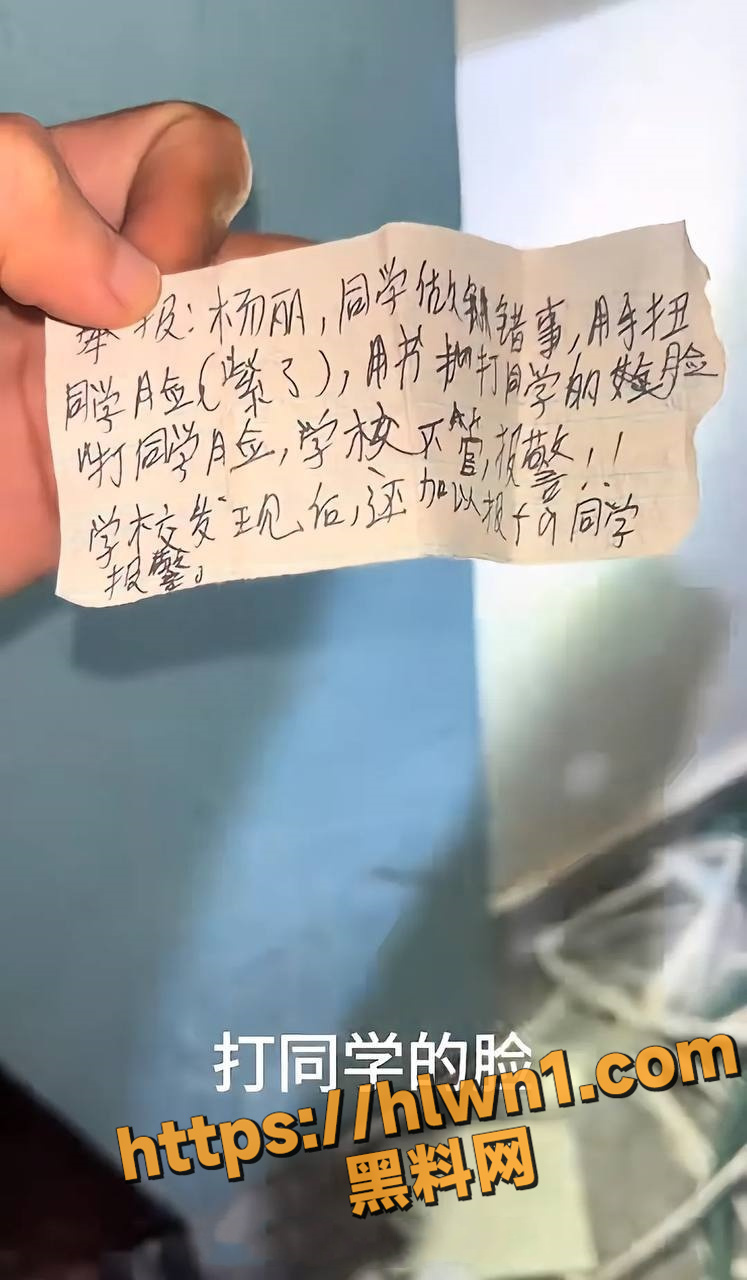 举报:杨丽,同学做错事,用手扭
同学脸(紫了),用书打同学的脸
打同学脸,学校不管,报警!!
学校发现后,还加以报的同学
报警。
打同学的脸
https://hlwn1.com
黑料网